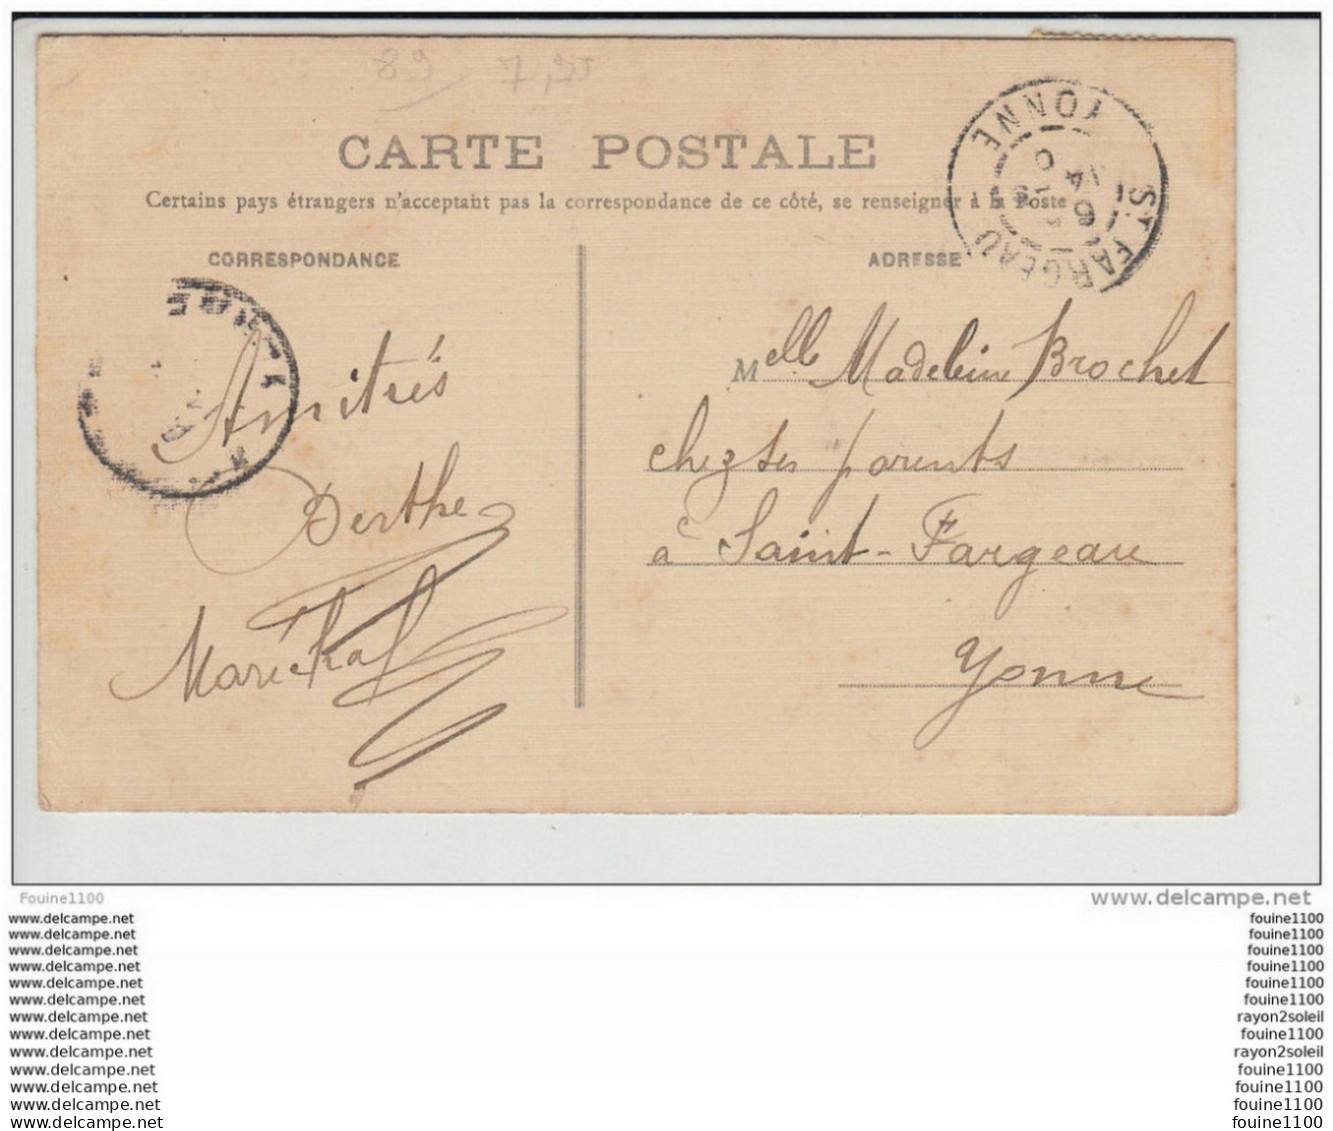 89 7,25
CARTE POSTALE
Certains pays étrangers n'acceptent pas la correspondance de ce côté, se renseigner à la Poste
CORRESPONDANCE
ADRESSE
ST FARGEAU YONNE
Amitiés
Berthe
Maréchal
Melle Madeleine Brochet
chez ses parents
à Saint-Fargeau
Yonne
Fouine1100
www.delcampe.net
www.delcampe.net fouine1100
www.delcampe.net fouine1100
www.delcampe.net fouine1100
www.delcampe.net fouine1100
www.delcampe.net fouine1100
www.delcampe.net fouine1100
www.delcampe.net rayon2soleil
www.delcampe.net fouine1100
www.delcampe.net rayon2soleil
www.delcampe.net fouine1100
www.delcampe.net fouine1100
www.delcampe.net fouine1100
www.delcampe.net fouine1100